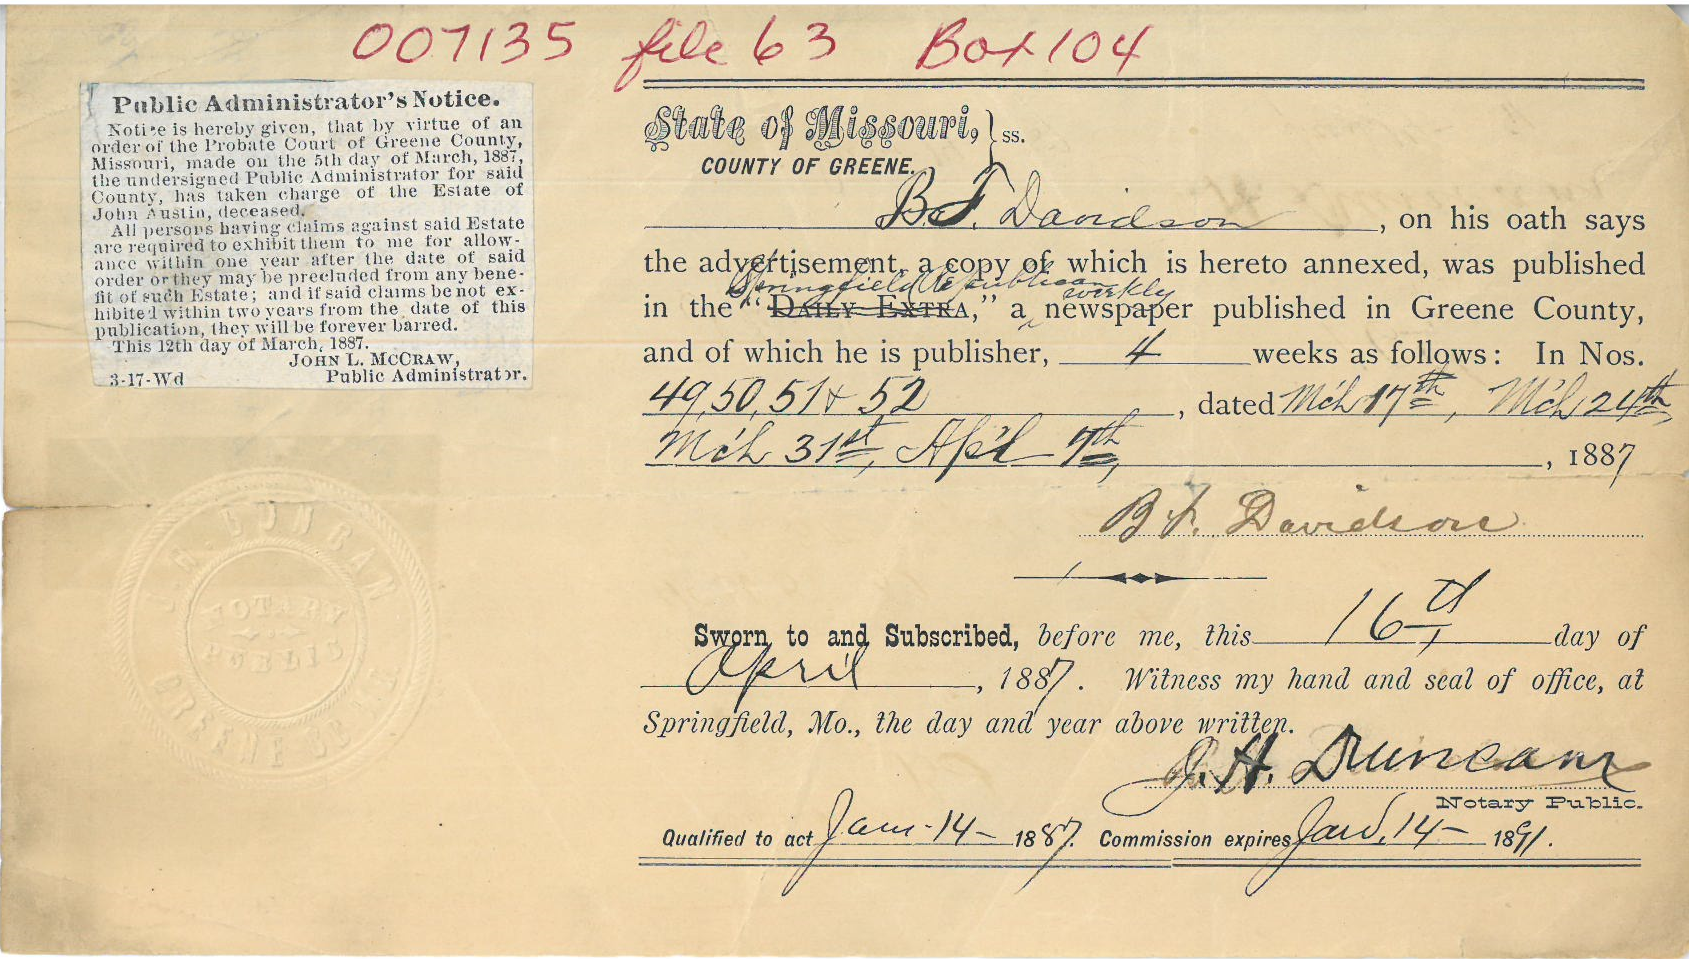 007135 file 63 Box 104
Public Administrator's Notice.
Notice is hereby given, that by virtue of an
order of the Probate Court of Greene County,
Missouri, made on the 5th day of March, 1887,
the undersigned Public Administrator for said
County, has taken charge of the Estate of
John Austin, deceased.
All persons having claims against said Estate
are required to exhibit them to me for allow-
ance within one year after the date of said
order or they may be precluded from any bene-
fit of such Estate; and if said claims be not ex-
hibited within two years from the date of this
publication, they will be forever barred.
This 12th day of March, 1887.
JOHN L. MCCRAW,
3-17-Wd Public Administrator.
State of Missouri, } ss.
COUNTY OF GREENE.
B. F. Davidson, on his oath says
the advertisement, a copy of which is hereto annexed, was published
Springfield Republican weekly
in the "DAILY EXTRA," a newspaper published in Greene County,
and of which he is publisher, 4 weeks as follows: In Nos.
49, 50, 51 & 52, dated Mch 17th, Mch 24th,
Mch 31st, Apl 7th, 1887
B. F. Davidson
Sworn to and Subscribed, before me, this 16th day of
April, 1887. Witness my hand and seal of office, at
Springfield, Mo., the day and year above written.
J. H. Duncan
Notary Public.
Qualified to act Jan-14- 1887. Commission expires Jan. 14- 1891.
J. H. DUNCAN
NOTARY
PUBLIC
GREENE CO.